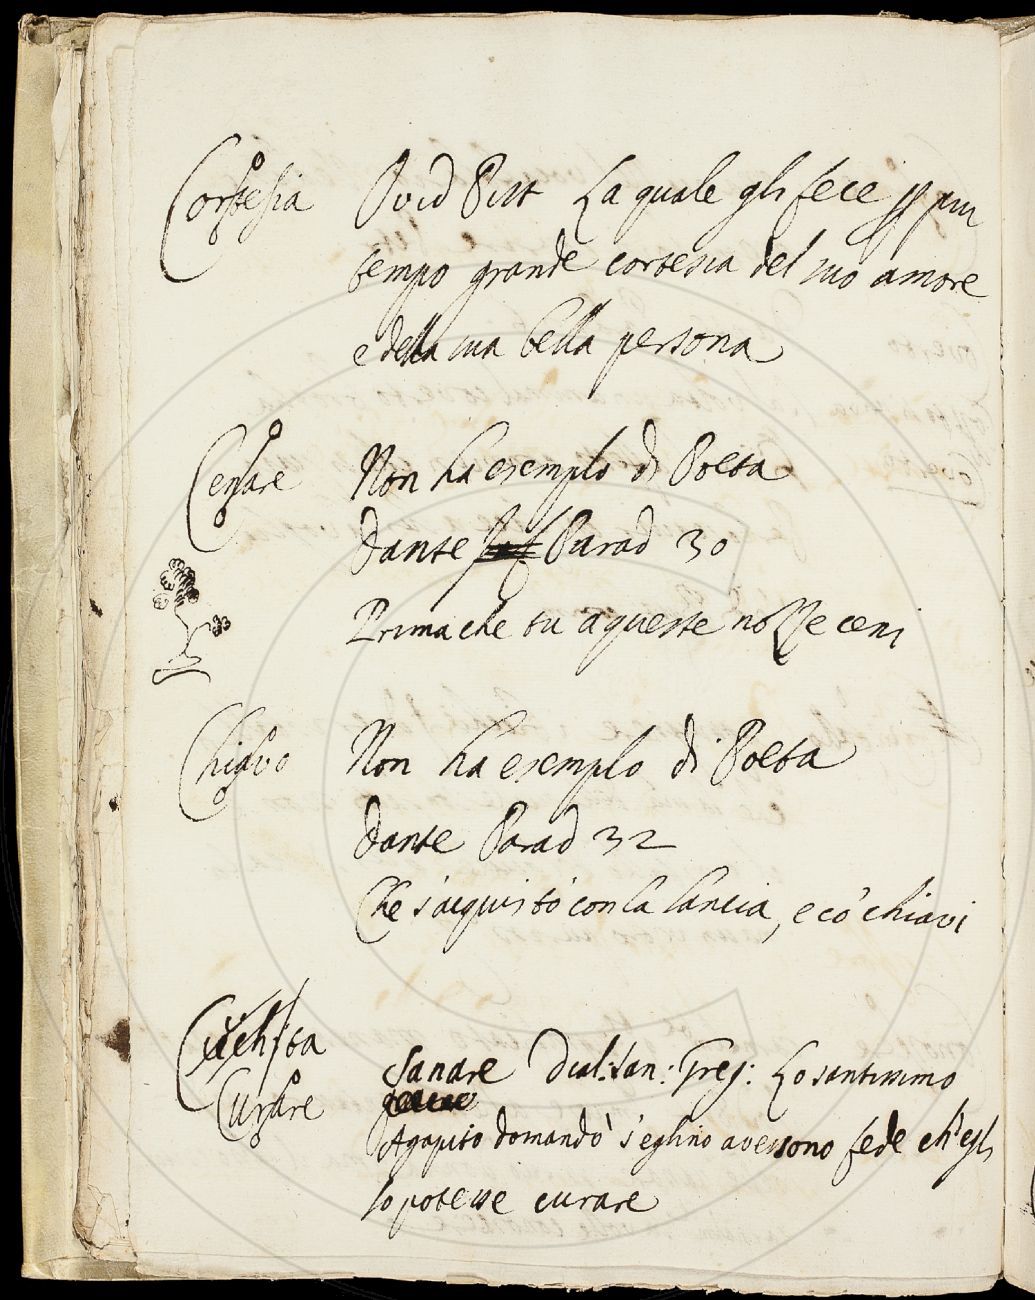 Cortesia Ovid Pist La quale gli fece gran
tempo grande cortesia del suo amore
e della sua bella persona
Cenare Non ha esemplo di Poeta
Dante Parad 30
Prima che tu a queste nozze ceni
Chiavo Non ha esemplo di Poeta
Dante Parad 32
Che s'acquistò con la lancia, e co' chiavi
Curare Sanare Dial: San: Greg: Lo santissimo
Agapito domandò s'eglino avessono fede ch'egli
lo potesse curare